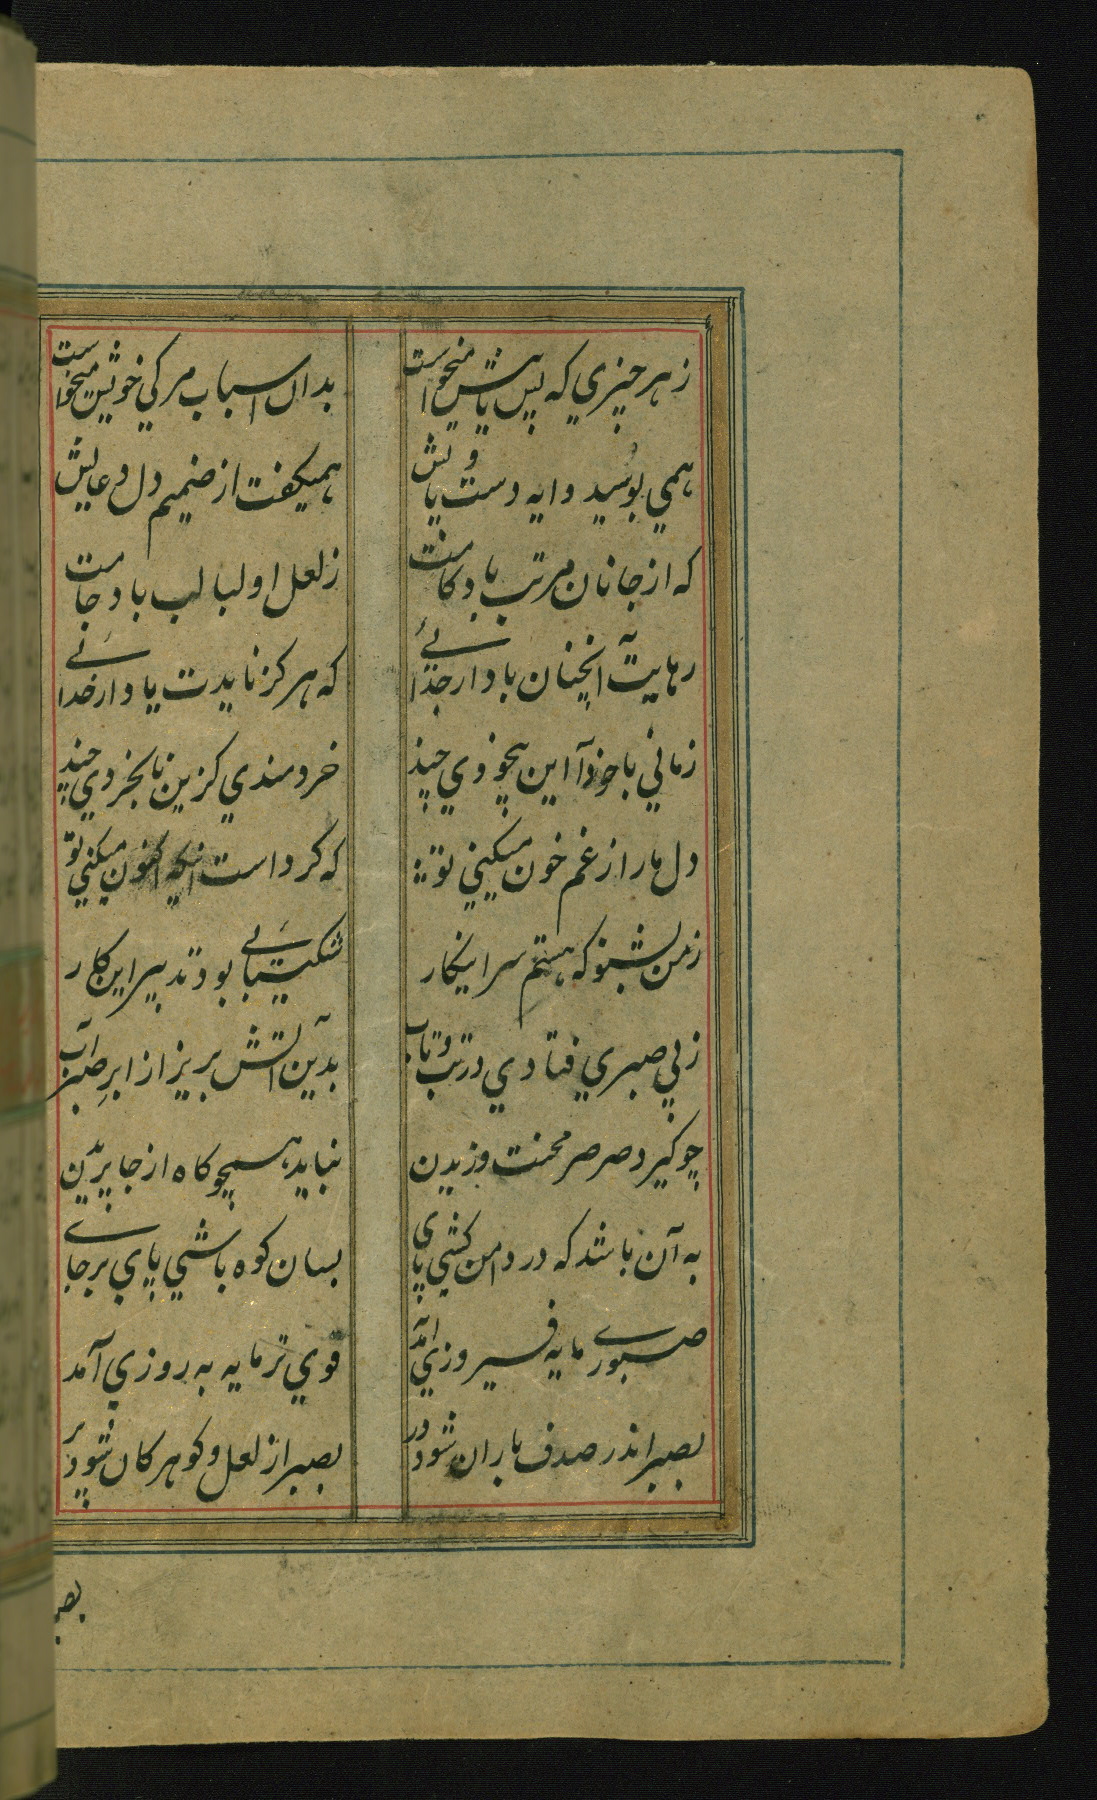 زهر چیزی که پیش پاش میخواست بدان اسباب مرکی خویش میخواست
همی بوسید دایه دست و پایش همیکفت از صمیم دل دعایش
که از جانان مرتب باد کامت ز لعل او لبالب باد جامت
رهاییت آنچنان باد از جدائی که هرکز نایدت یاد از جدائی
زمانی با خود آ این بیخودی چند خردمندی کزین نابخردی چند
دل ما را ز غم خون میکینی تو که کرد است انچه اکنون میکنی تو
ز من بشنو که هستم سر اینکار شکیبایی بود تدبیر این کار
ز بی صبری فتادی در تب و تاب بدین آتش بریز از ابر صبر آب
چو کیرد صرصر محنت وزیدن نباید همچو کاه از جا پریدن
به آن باشد که در دامن کشی پای بسان کوه باشی پای برجای
صبوری مایه فیروزی آمد قوی تر مایه به روزی آمد
بصبر اندر صدف باران شود در بصبر از لعل و کوهر کان شود پر